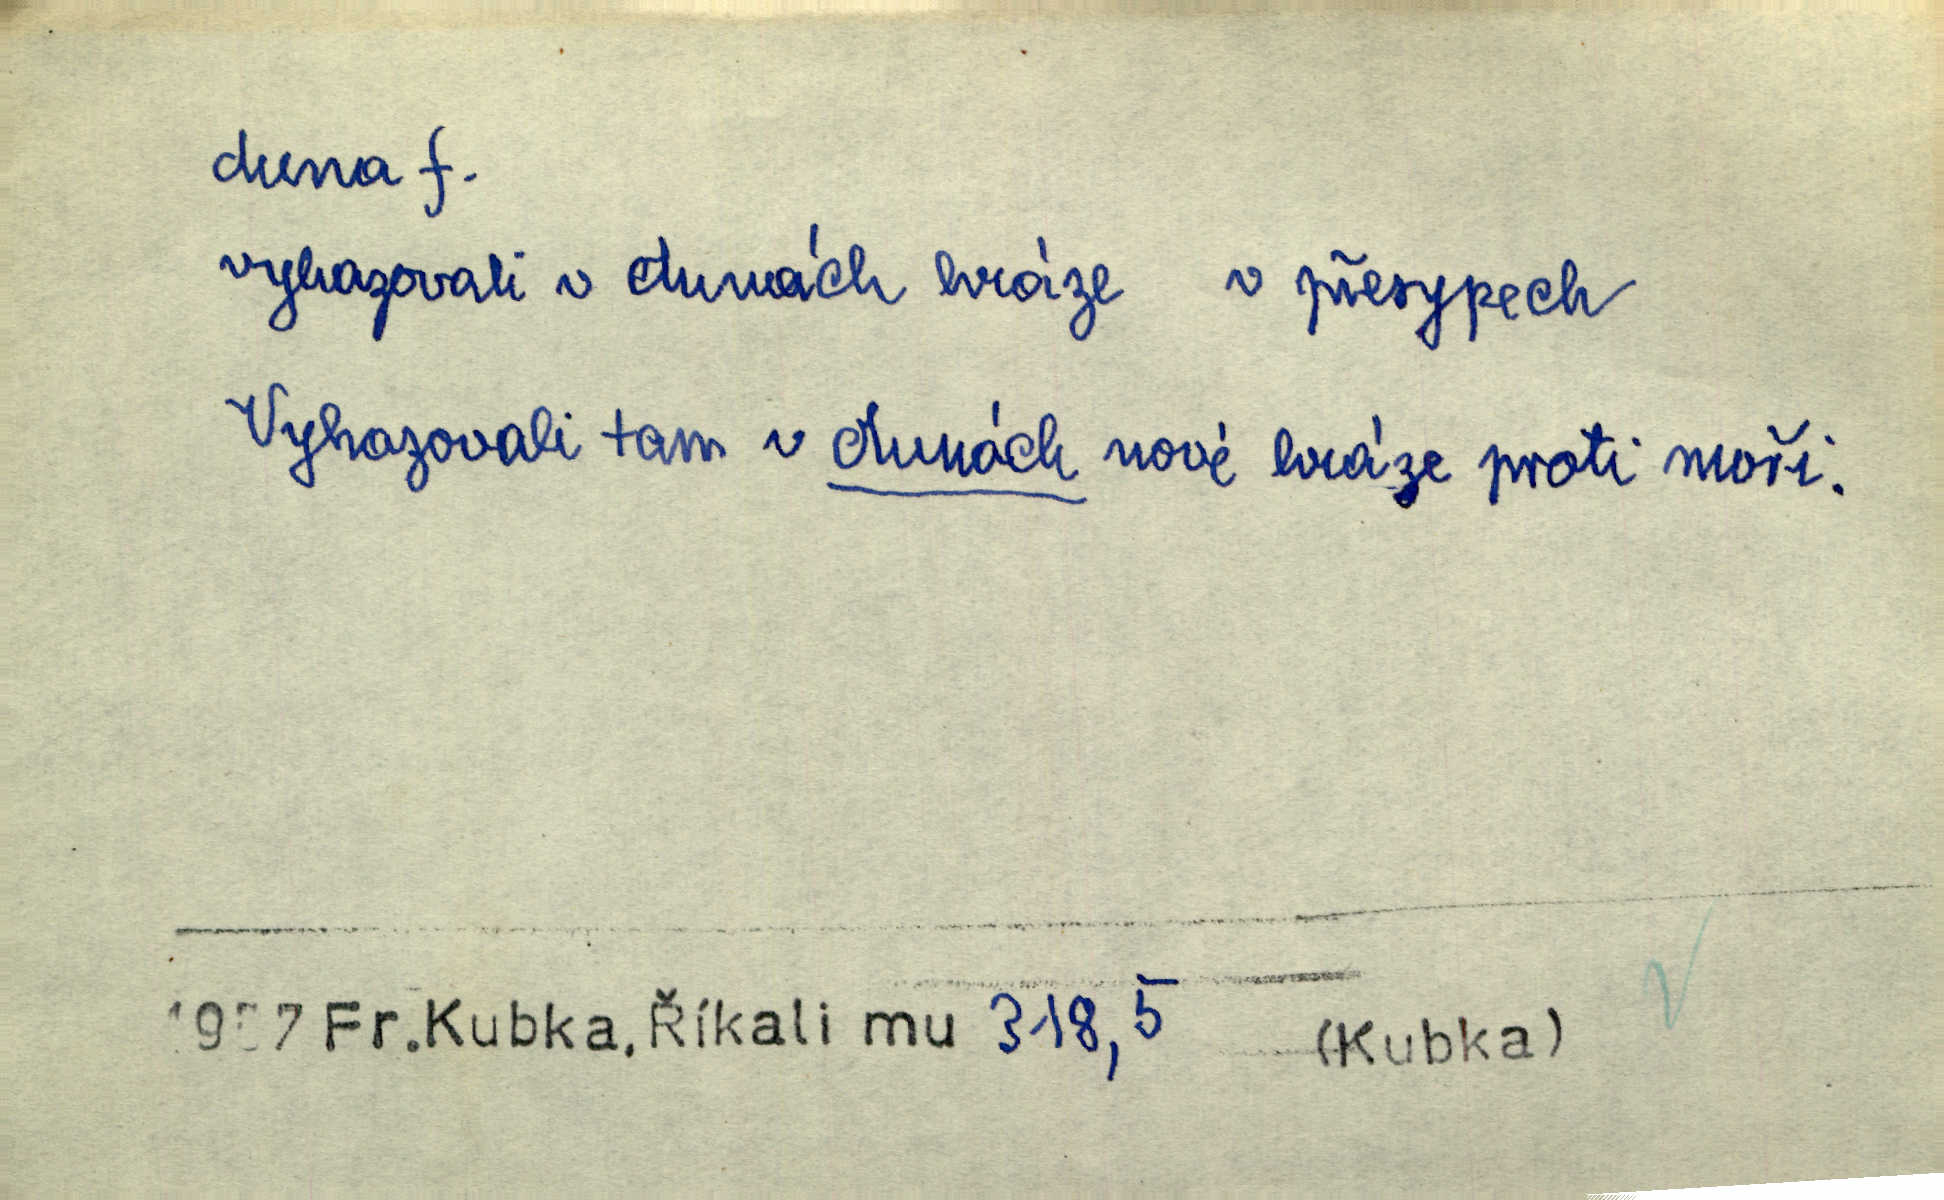 duna f.
vyhazovali v dunách hráze v přesypech
Vyhazovali tam v dunách nové hráze proti moři.
1957 Fr. Kubka, Říkali mu 318,5 (Kubka)